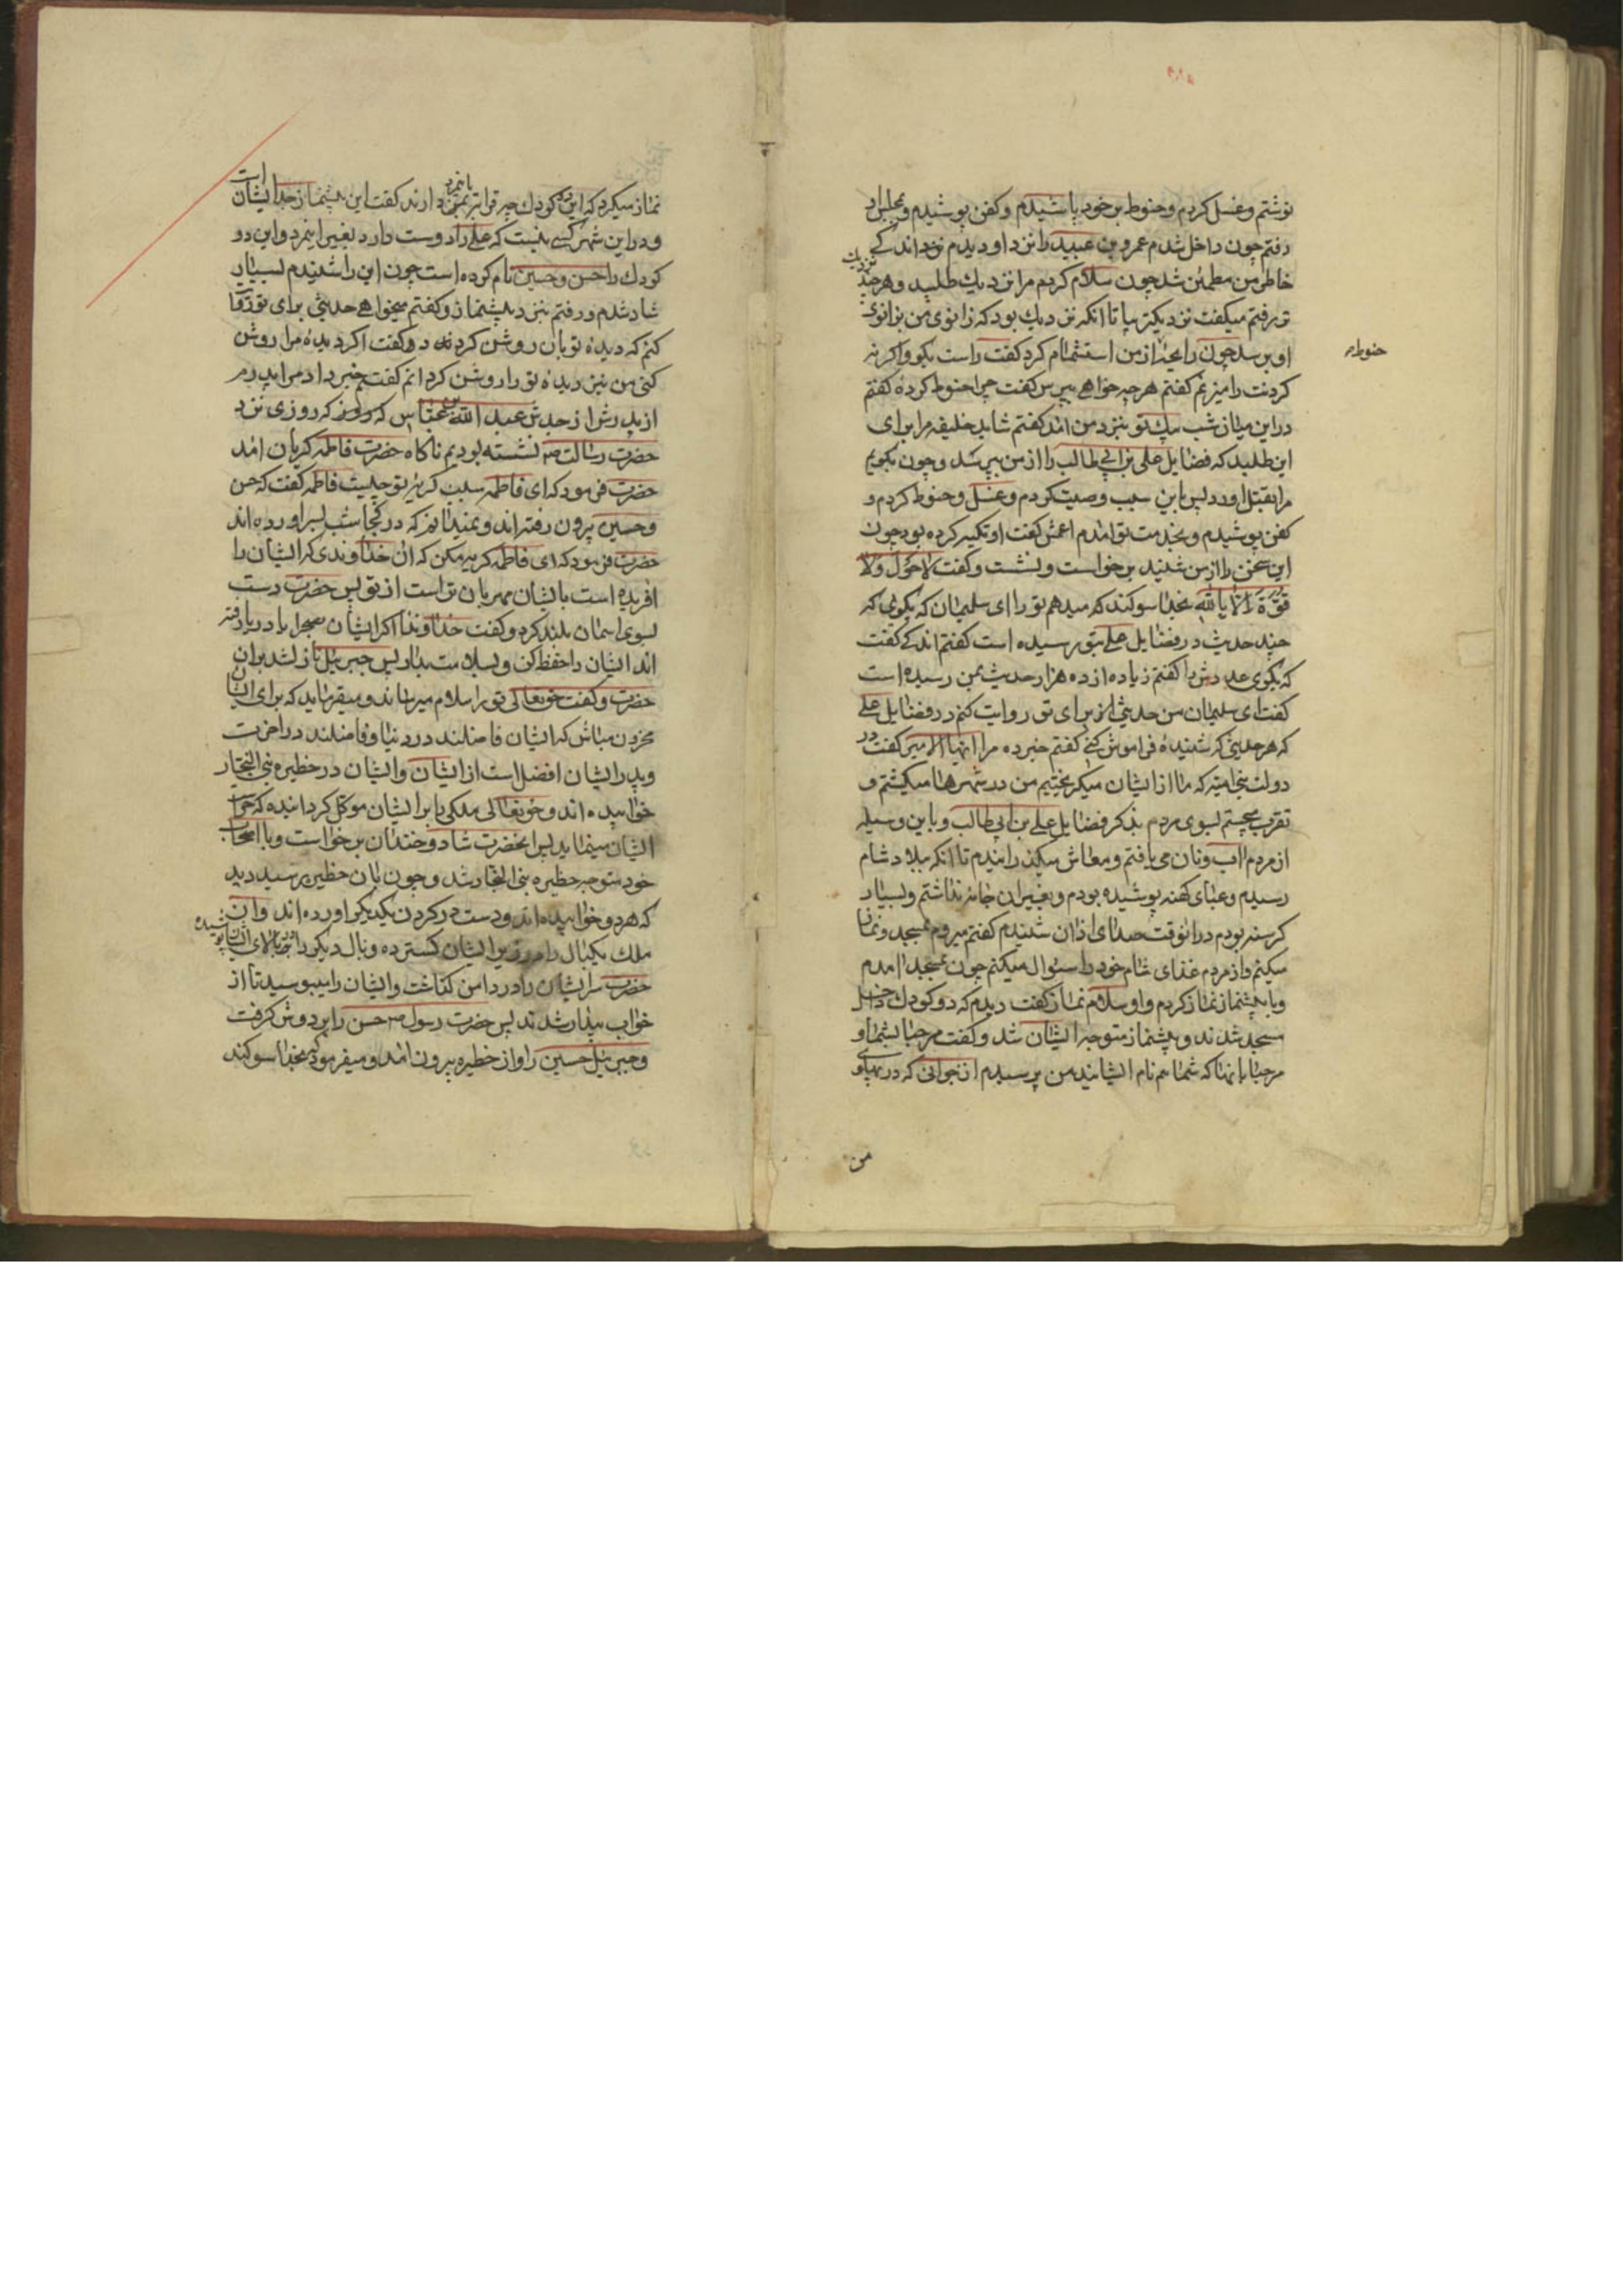 نوشتم و غسل کردم و حنوط بر خود پاشیدم و کفن پوشیدم و بمجلس او
رفتم چون داخل شدم عمرو بن عبید را نزد او دیدم اندکی
خاطر من مطمئن شد چون سلام کردم مرا نزدیك طلبید و هر چند نزدیك
تر رفتم میکفت نزدیکتر بیا تا انکه نزدیك بود که زانوی من بزانوی
او برسد چون رایحه از من استشمام کرد کفت راست بکو و اکر نه
کردنت را میزنم کفتم هر چه خواهی بپرس کفت چرا حنوط کردهٔ کفتم
در این میان شب پیك تو بنزد من امد کفتم شاید خلیفه مرا برای
این طلبید که فضایل علی بن ابی طالب را از من بپرسد و چون بکویم
مرا بقتل اورد پس باین سبب وصیت کردم و غسل و حنوط کردم و
کفن پوشیدم و بخدمت تو امدم اعمش کفت او تکیه کرده بود چون
این سخن را از من شنید برخواست و نشست و کفت لا حول و لا
قوة الا بالله بخدا سوکند که میدهم تو را ای سلیمان که بکوی که
چند حدیث در فضایل علی بتو رسیده است کفتم اندکی کفت
که بکوی عددش را کفتم زیاده از ده هزار حدیث بمن رسیده است
کفت ای سلیمان من حدیثی از برای تو روایت کنم در فضایل علی
که هر حدیثی که شنیدهٔ فراموش کنی کفتم خبر ده مرا ایها الامیر کفت در
دولت بنی امیه که ما از ایشان میکریختیم من در شهرها میکشتم و
تقرب میجستم بسوی مردم بذکر فضایل علی بن ابی طالب و باین وسیله
از مردم اب و نان می یافتم و معاش میکذرانیدم تا انکه ببلاد شام
رسیدم و عبای کهنه پوشیده بودم و بغیر ان جامه نداشتم و بسیار
کرسنه بودم در انوقت صدای اذان شنیدم کفتم میروم بمسجد و نماز
میکنم و از مردم غذای شام خود را سئوال میکنم چون بمسجد امدم
و با پیشنماز نماز کردم و او سلام نماز کفت دیدم که دو کودك داخل
مسجد شدند و پیشنماز متوجه ایشان شد و کفت مرحبا بشما و
مرحبا بانها که شما هم نام ایشانید من پرسیدم از جوانی که در پهلوی
من
نماز میکرد که این دو کودك چه قرابتی با نمرد دارند کفت این پیشنماز جد ایشان است
و در این شهر کسی نیست که علی را دوست دارد بغیر این مرد و این دو
کودك را حسن و حسین نام کرده است چون این را شنیدم بسیار
شاد شدم و رفتم بنزد پیشنماز و کفتم میخواهی حدیثی برای تو روایت
کنم که دیدهٔ تو بان روشن کردد کفت اکر دیدهٔ مرا روشن
کنی من نیز دیدهٔ تو را روشن کردانم کفتم خبر داد مرا پدرم
از پدرش از جدش عبد الله بن عباس که روزی نزد
حضرت رسالت نشسته بودیم ناکاه حضرت فاطمه کریان امد
حضرت فرمود که ای فاطمه سبب کریهٔ تو چیست فاطمه کفت که حسن
و حسین بیرون رفته اند و نمیدانم که در کجا شب بسر اورده اند
حضرت فرمود که ای فاطمه کریه مکن که ان خداوندی که ایشان را
افریده است بایشان مهربان تر است از تو پس حضرت دست
بسوی اسمان بلند کرد و کفت خداوندا اکر ایشان بصحرا یا دریا رفته
اند ایشان را حفظ کن و بسلامت بدار پس جبرئیل نازل شد بر ان
حضرت و کفت حقتعالی تو را سلام میرساند و میفرماید که برای ایشان
محزون مباش که ایشان فاضلند در دنیا و فاضلند در اخرت
و پدر ایشان افضل است از ایشان و ایشان در حظیره بنی النجار
خوابیده اند و حقتعالی ملکی را بر ایشان موکل کردانیده که حراست
ایشان مینماید پس انحضرت شاد و خندان برخواست و با اصحاب
خود متوجه حظیره بنی النجار شد و چون بان حظیره رسید دید
که هر دو خوابیده اند و دست در کردن یکدیکر اورده اند و ان
ملك یکبال را در زیر ایشان کسترده و بال دیکر را بر بالای ایشان پوشیده
حضرت سر ایشان را در دامن کذاشت و ایشان را میبوسید تا از
خواب بیدار شدند پس حضرت رسول حسن را بر دوش کرفت
و جبرئیل حسین را و از حظیره بیرون امد و میفرمود که بخدا سوکند